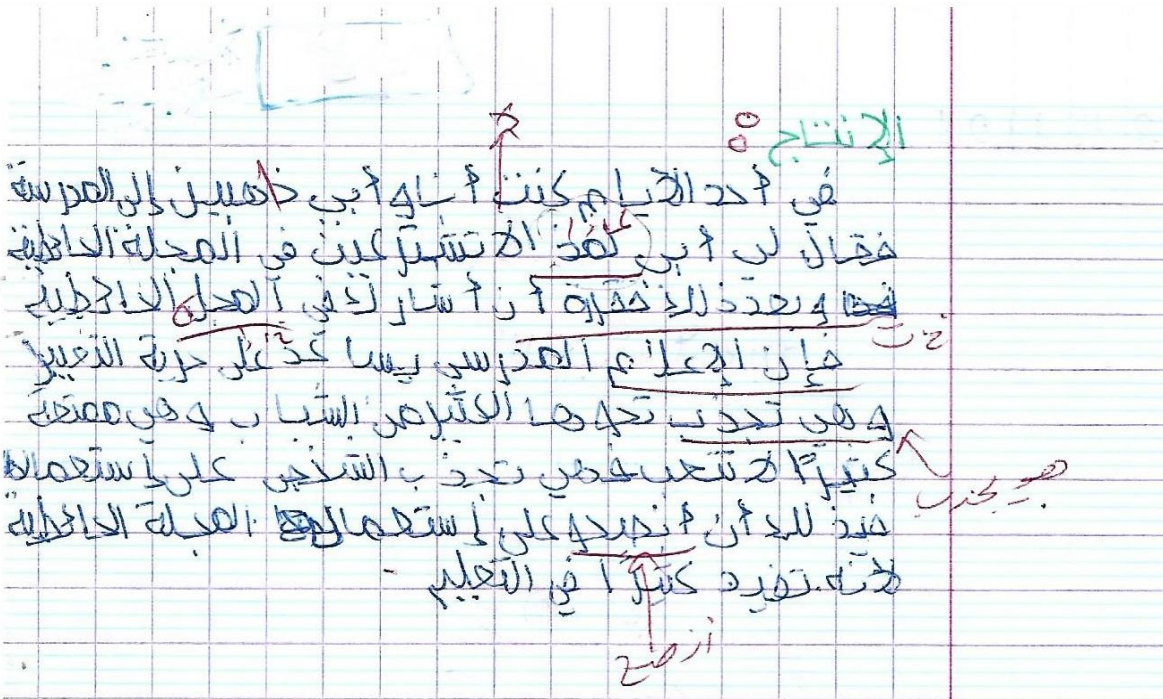 الإنتاج :
في أحد الأيام كنت أنا و أبي ذاهبين إلى المدرسة
فقال لي أبي لماذا لا تشتركين في المجلة الحائطية
وبعد ذلك فقررة أن أشارك في المجل الحائطية
فإن الإعلام المدرسي يساعد على حرية التعبير
و هي تجذب نحوها الكثير من الشباب و هي ممتعة
كثيرًا لا تتعب فهي تجذب الشخص على إستعمالها
فبذلك أن أنصحو على إستعمال المجلة الحائطية
لأنه تفيد كثيرًا في التعليم.
هو يجذب
أنصح